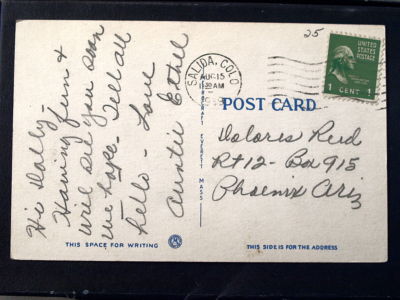 Hi Dolly,
Having fun &
will see you soon
we hope. Tell all
hello - Love
Auntie Ethel
THIS SPACE FOR WRITING
25
SALIDA, COLO
AUG 15
AM
UNITED
STATES
POSTAGE
1 CENT 1
EVERETT MASS
POST CARD
Dolores Reid
Rt 12 - Box 915
Phoenix Ariz
THIS SIDE IS FOR THE ADDRESS